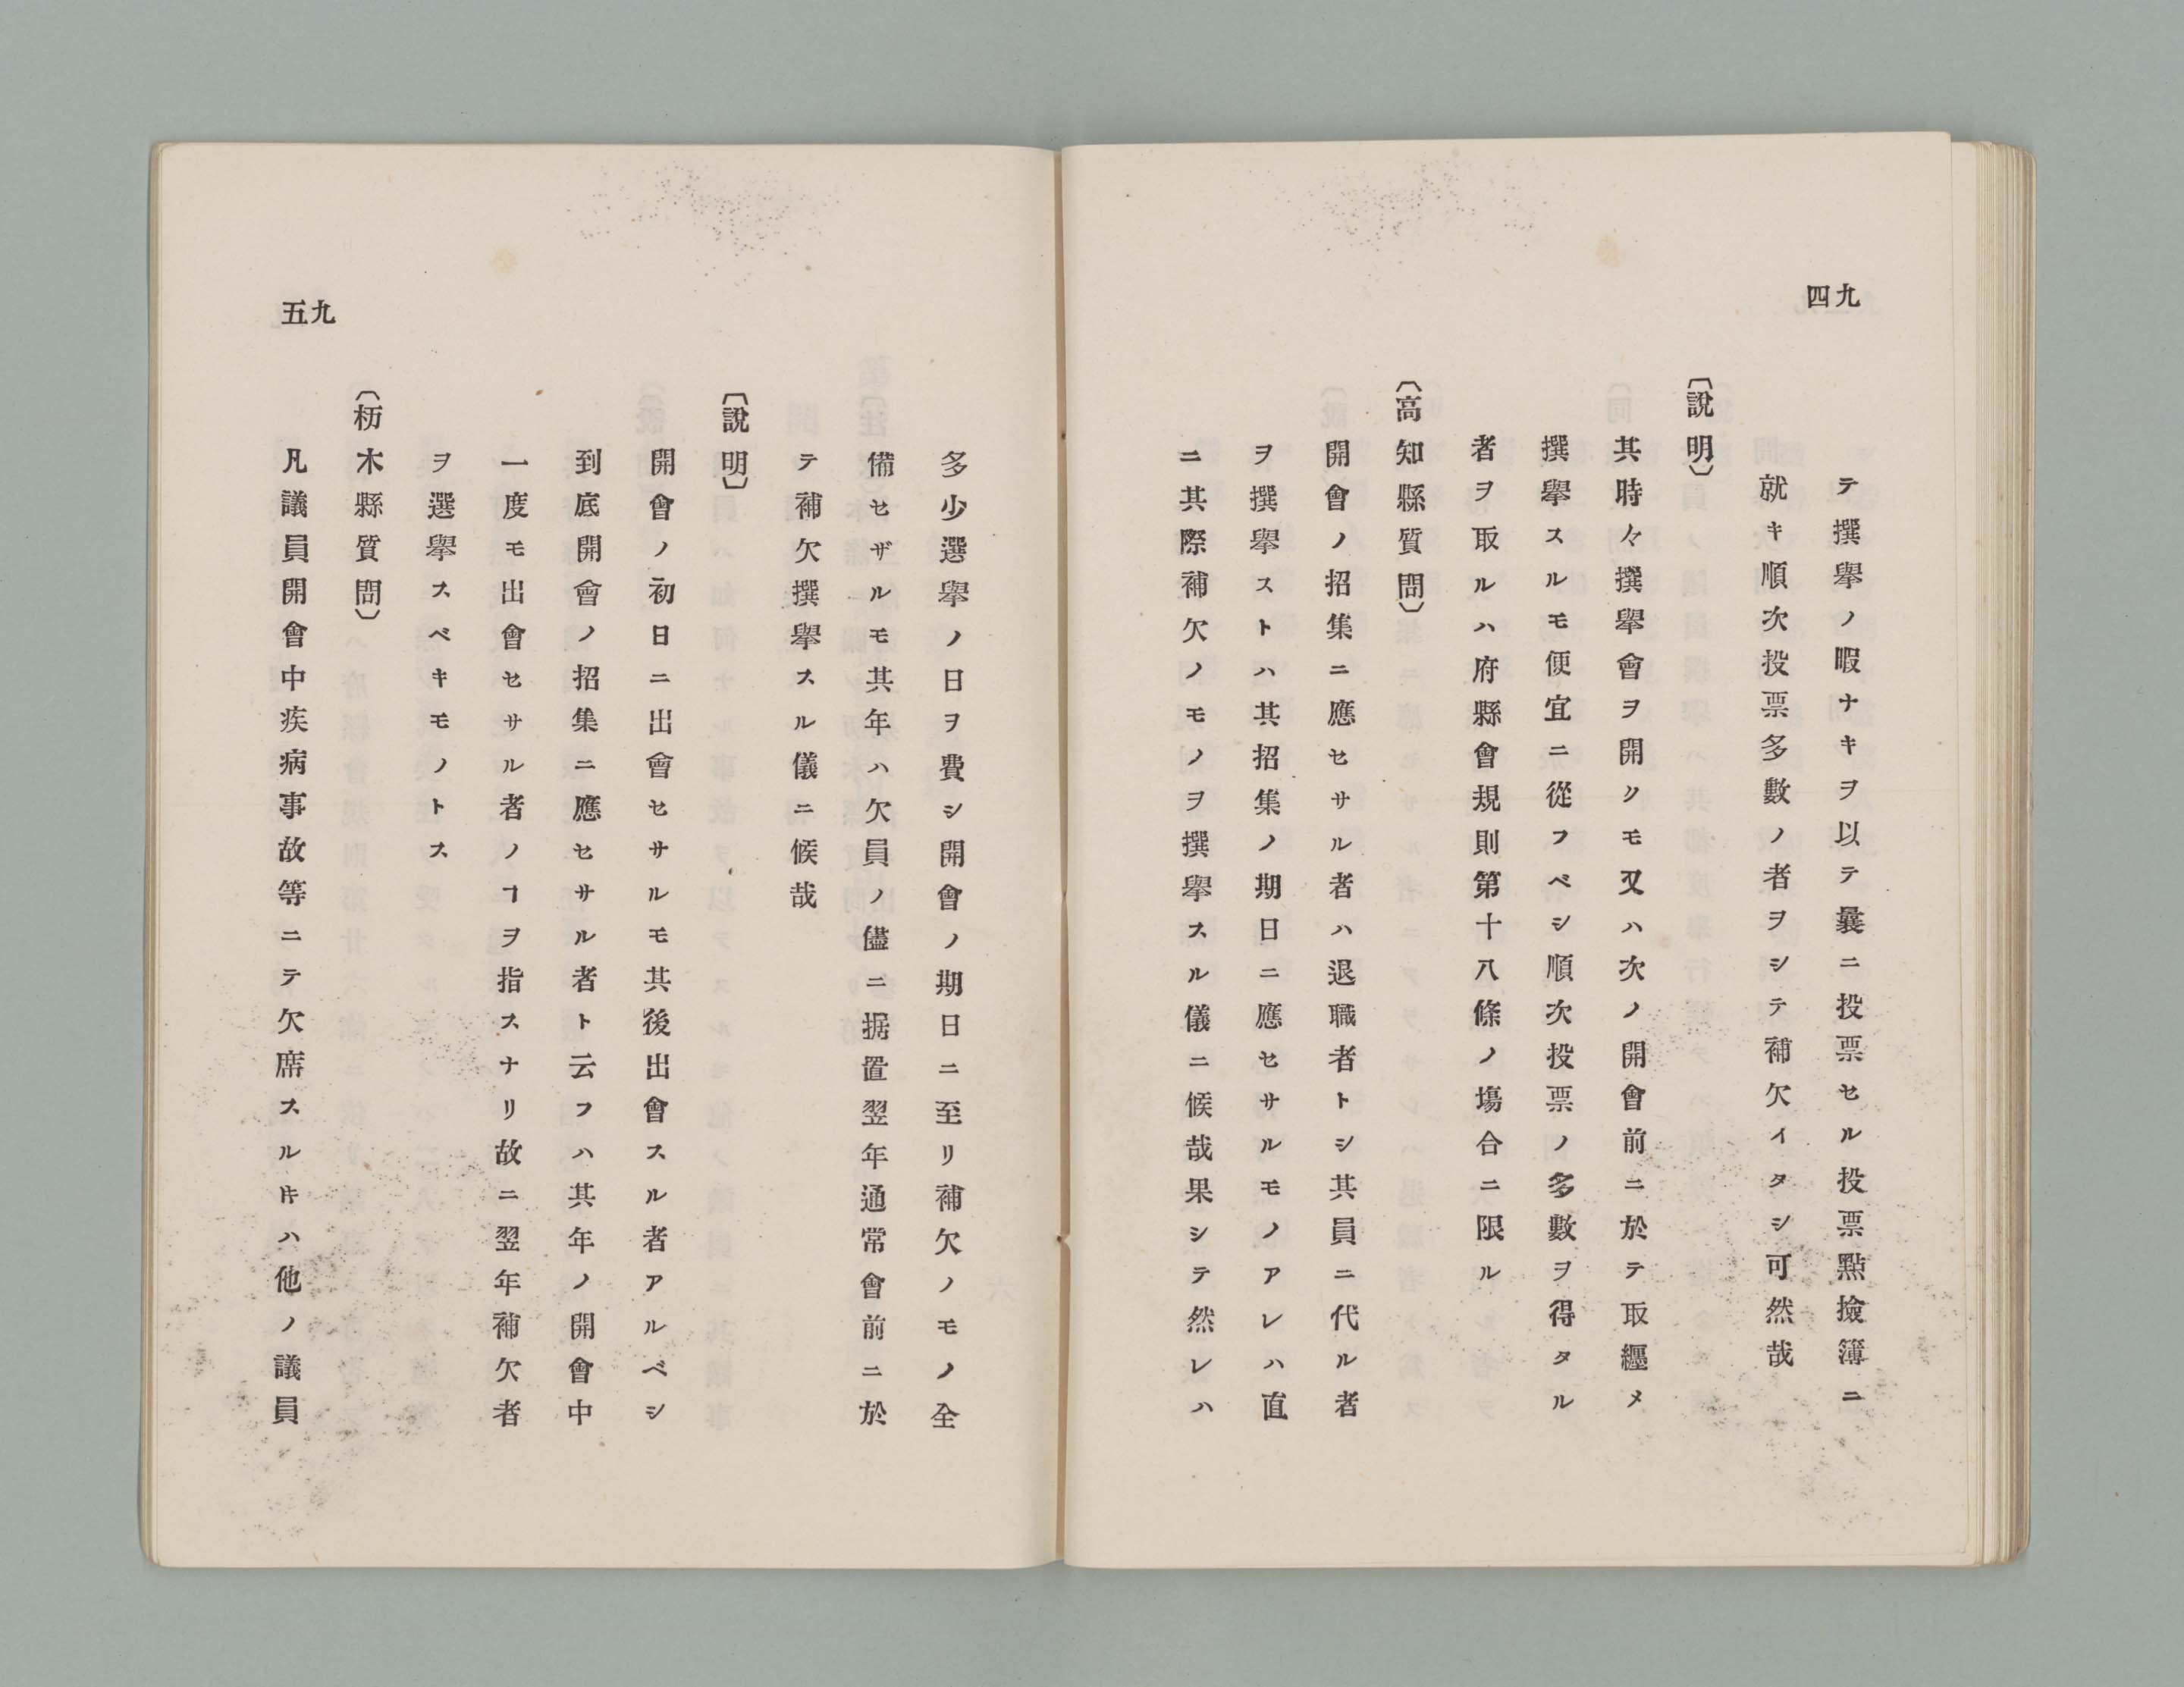 九四
テ撰擧ノ暇ナキヲ以テ曩ニ投票セル投票點撿簿ニ
就キ順次投票多數ノ者ヲシテ補欠イタシ可然哉
〔說明〕
其時々撰擧會ヲ開クモ又ハ次ノ開會前ニ於テ取纒メ
撰擧スルモ便宜ニ從フベシ順次投票ノ多數ヲ得タル
者ヲ取ルハ府縣會規則第十八條ノ塲合ニ限ル
〔高知縣質問〕
開會ノ招集ニ應セサル者ハ退職者トシ其員ニ代ル者
ヲ撰擧ストハ其招集ノ期日ニ應セサルモノアレハ直
ニ其際補欠ノモノヲ撰擧スル儀ニ候哉果シテ然レハ
九五
多少選擧ノ日ヲ費シ開會ノ期日ニ至リ補欠ノモノ全
備セザルモ其年ハ欠員ノ儘ニ据置翌年通常會前ニ於
テ補欠撰擧スル儀ニ候哉
〔說明〕
開會ノ初日ニ出會セサルモ其後出會スル者アルベシ
到底開會ノ招集ニ應セサル者ト云フハ其年ノ開會中
一度モ出會セサル者ノヿヲ指スナリ故ニ翌年補欠者
ヲ選擧スベキモノトス
〔栃木縣質問〕
凡議員開會中疾病事故等ニテ欠席スル𪜈ハ他ノ議員